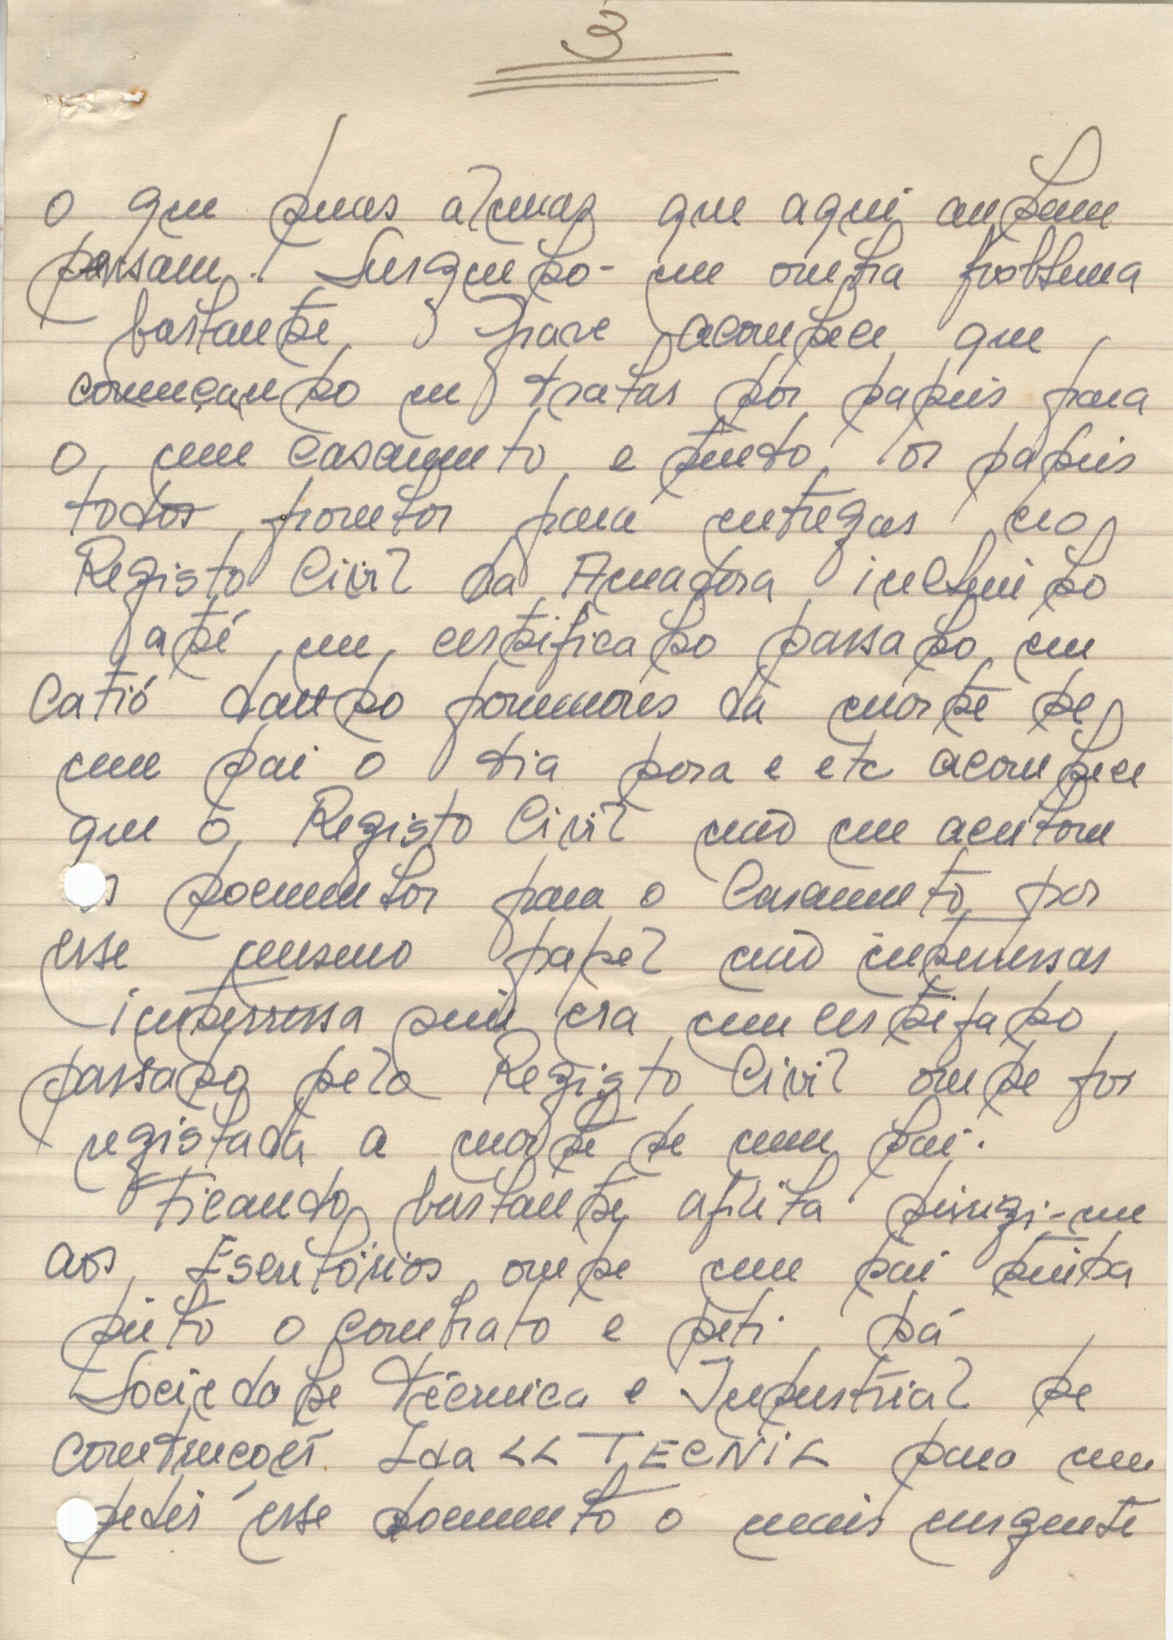 3
o que duas almas que aqui andam
pensam. Surgindo-me outra problema
bastante grave acontece que
começando eu tratar dos papeis para
o meu casamento e tendo os papeis
todos prontos para entregar no
Registo Civil da Amadora incluindo
até um certificado passado em
Catió dando pormenores da morte de
meu pai o dia hora e etc acontece
que o Registo Civil não me aceitou
os documentos para o Casamento por
esse mesmo papel não interessar
interressa sim era um certifado
passado pelo Registo Civil onde foi
registada a morte de meu pai.
Ficando bastante aflita dirigi-me
aos Escritórios onde meu pai tinha
feito o contrato e pedi há
Sociedade Técnica e Industrial de
Contrucoes Lda << TECNIL para me
pedir esse documento o mais urgente